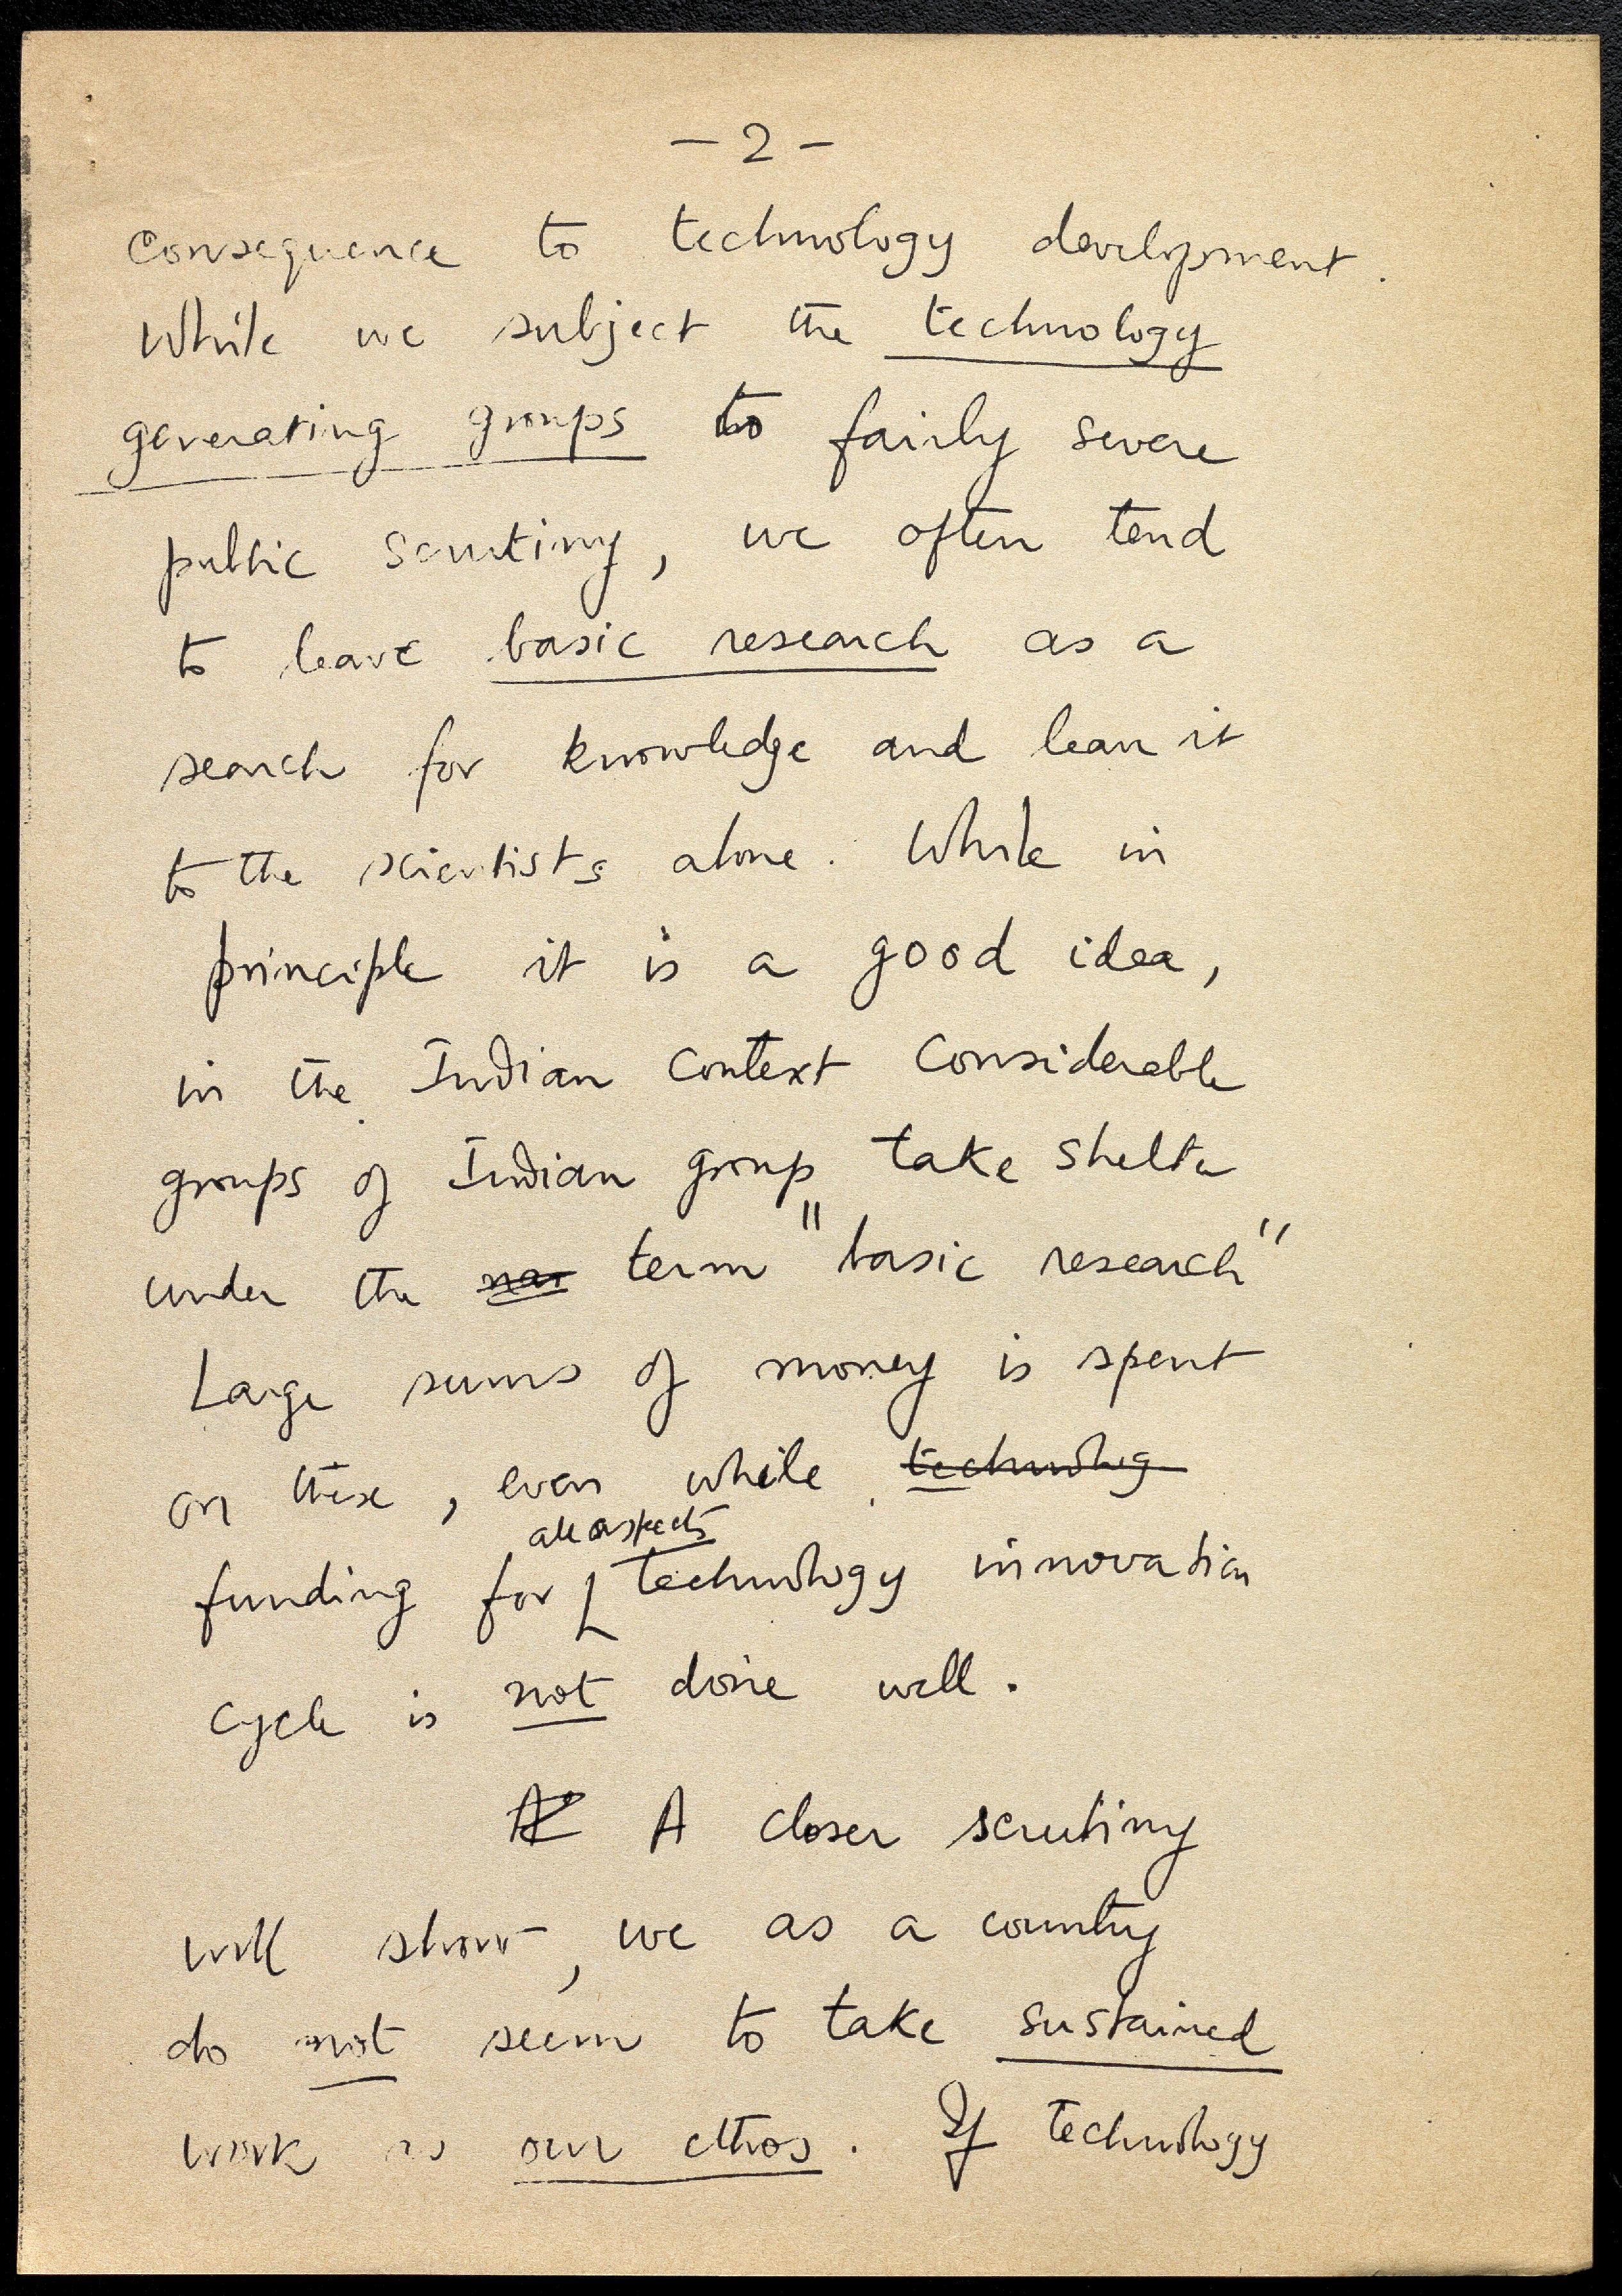 - 2 -
consequence to technology development.
While we subject the technology
generating groups to fairly severe
public scrutiny, we often tend
to leave basic research as a
search for knowledge and leave it
to the scientists alone. While in
principle it is a good idea,
in the Indian context considerable
groups of Indian group take shelter
under the term "basic research"
Large sums of money is spent
on these, even while technolog
all aspects
funding for technology innovation
cycle is not done well.
A closer scrutiny
will show, we as a country
do not seem to take sustained
work as our ethos. If technology